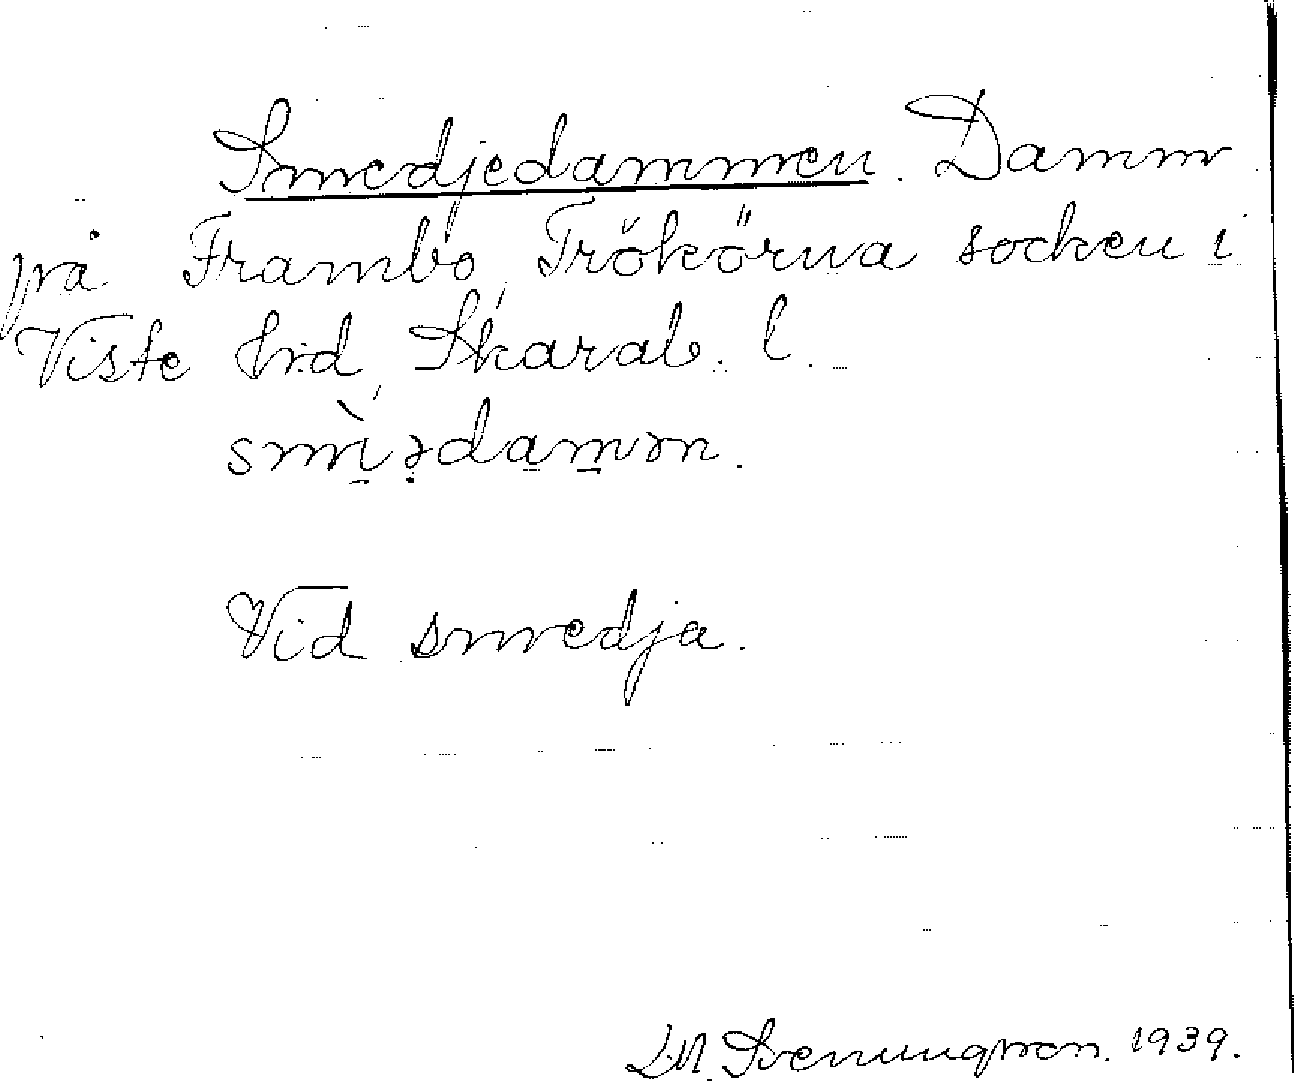 Smedjedammen. Damm
på Frambo, Trökörna socken i
Viste hrd, Skarab. l.
smìədamən.
Vid smedja.
Svenungson. 1939.